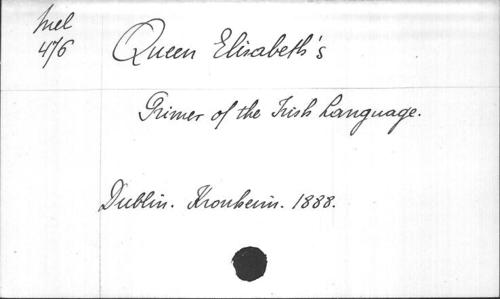 Mel
4/6
Queen Elisabeth's
Primer of the Irish Language.
Dublin. Kronheim. 1888.